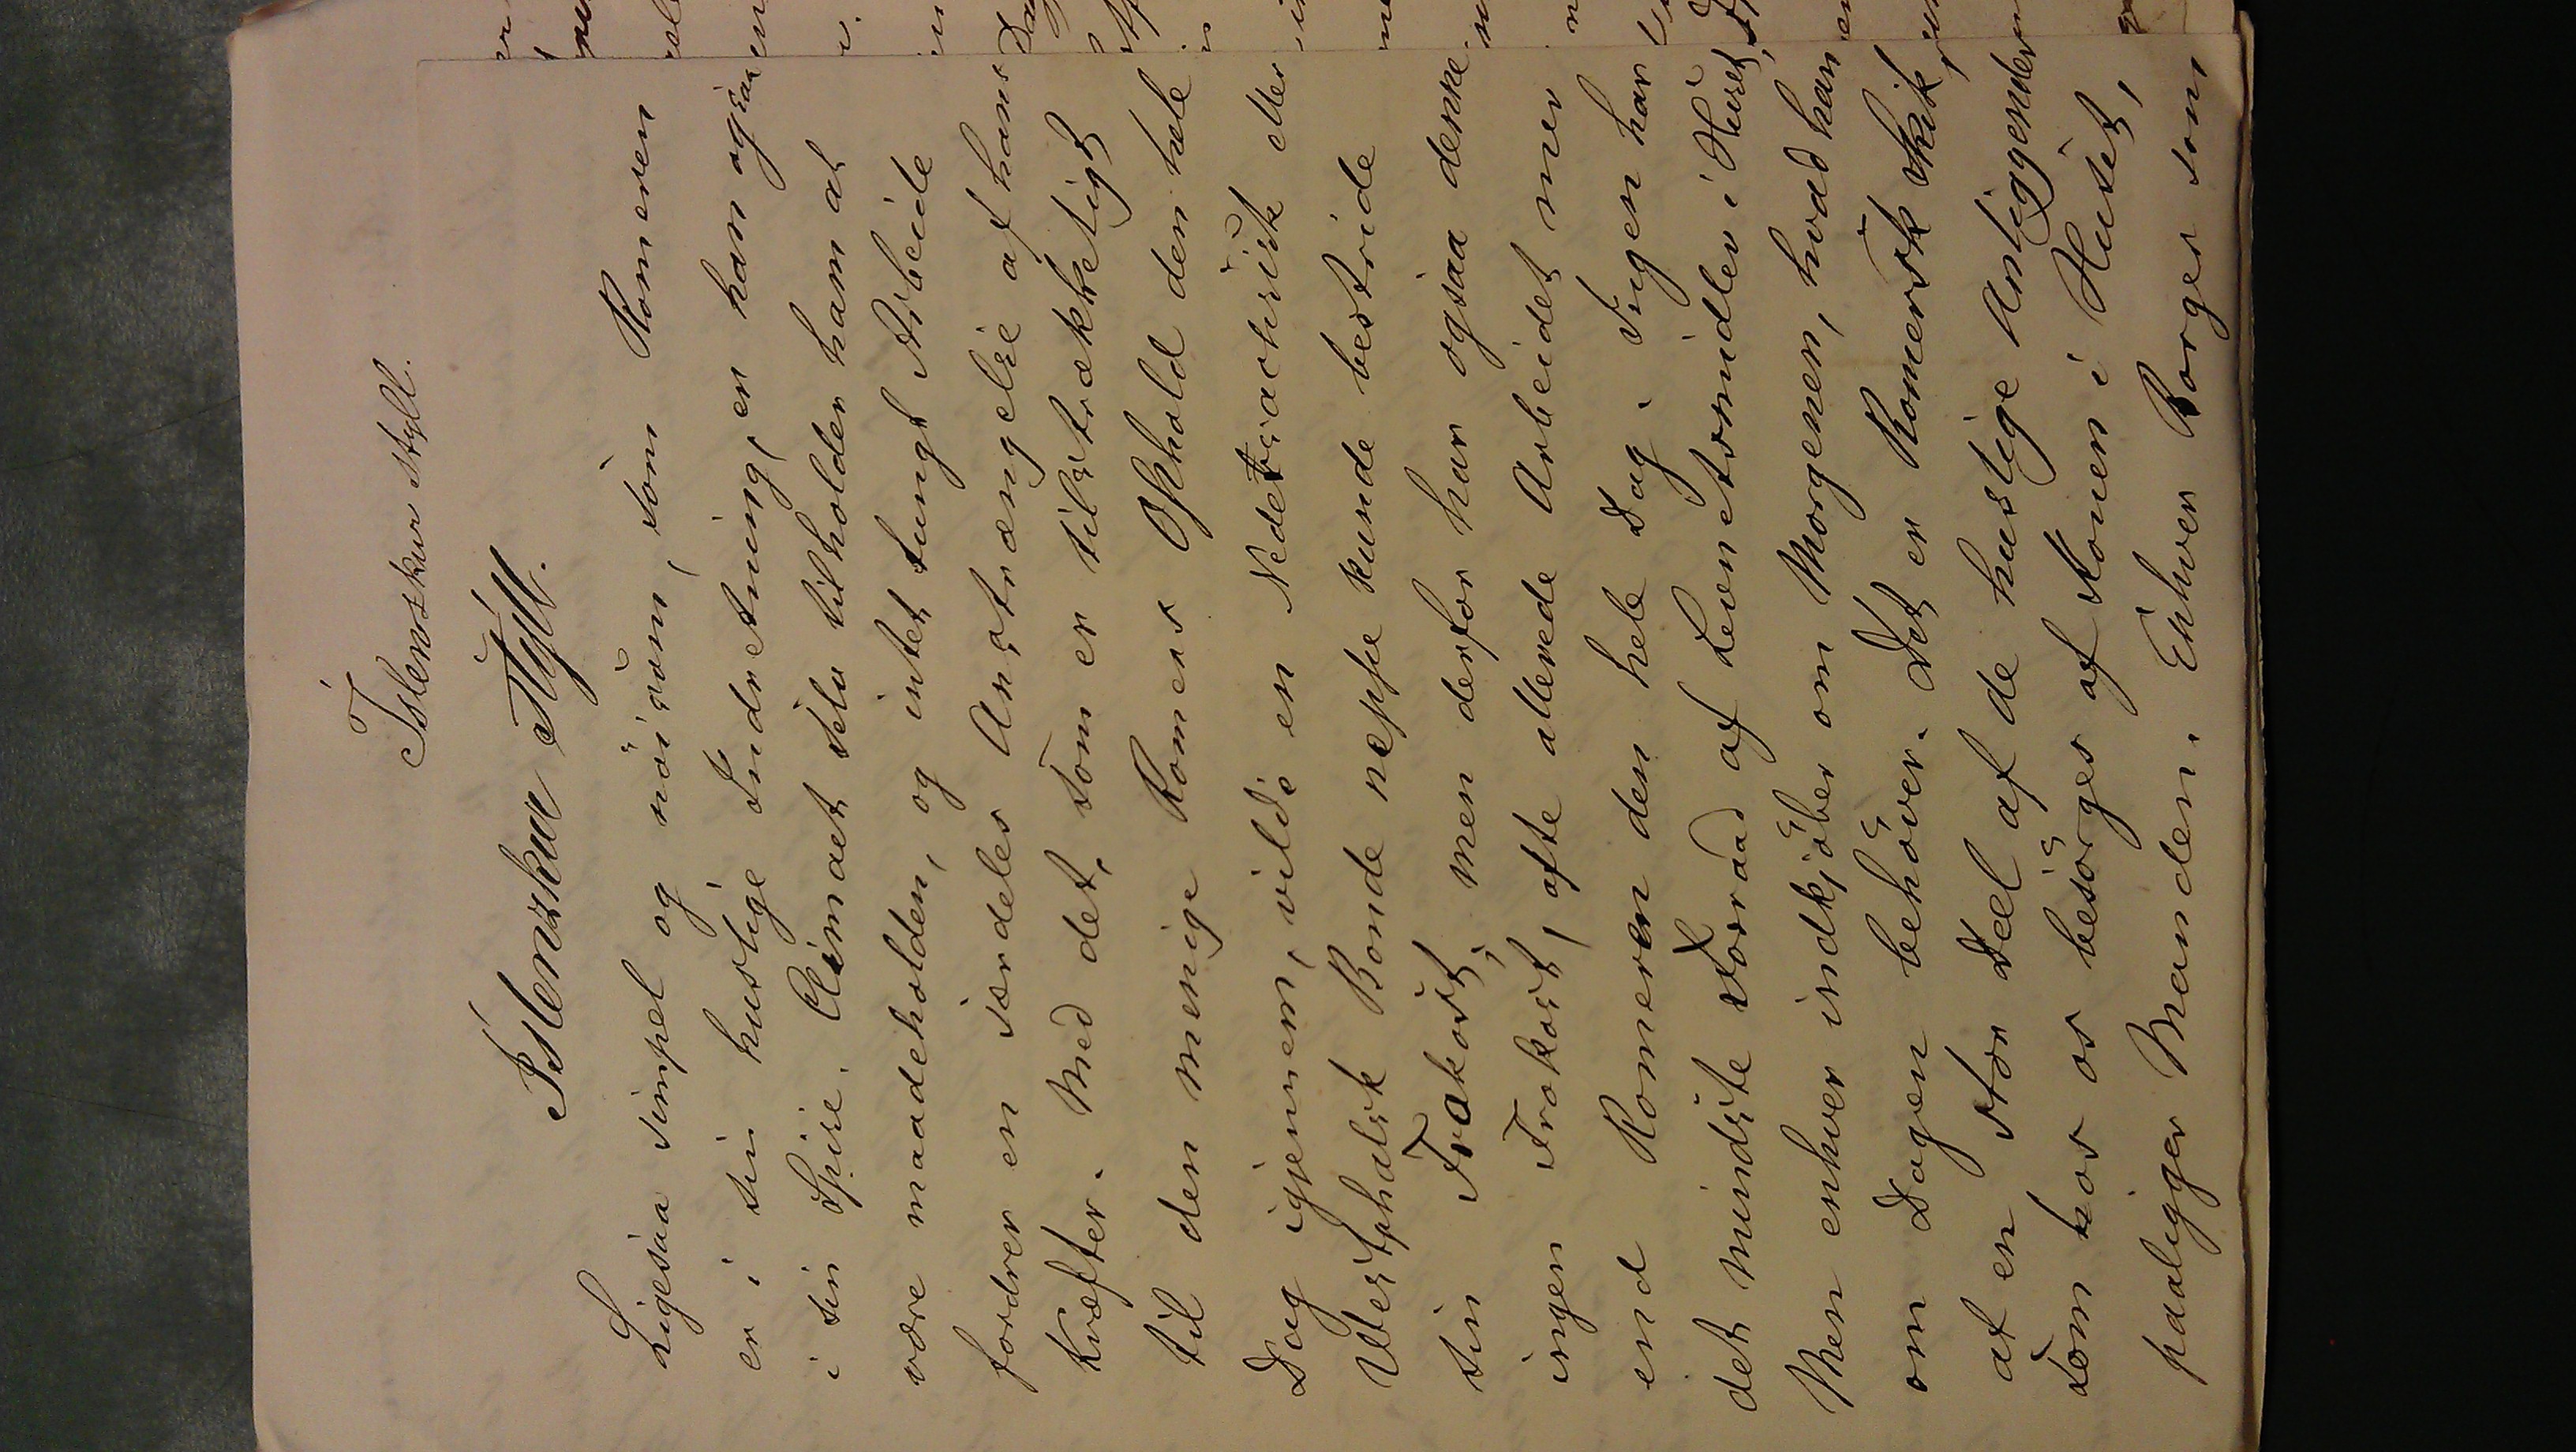 Íslenzkur Stýll.
Íslenzkur Stýll.
Ligesaa simpel og nöisom, som Romeren
er i sin huslige Indretning, er han ogsaa
i sin Spise. Climaet selv tilholder ham at
være maadeholden, og intet tungt Arbeide
fordrer en særdeles Anstrængelse af hans
Kræfter. Med det, som er tilstrækkeligt
til den menige Romers Ophold den hele
Dag igjennem, vilde en Nedersachsisk eller
Westphalsk Bonde neppe kunde bestride
sin Frokost; men derfor har ogsaa denne
ingen Frokost, ofte allerede Arbeidet mer
end Romeren den hele Dag. Ingen har
det mindste Forraad af Levnetsmidler i Huset,
Men enhver indkjöber om Morgenen, hvad han
om Dagen behöver. Det er Romersk Skik,
at en stor Deel af de huslige Anliggender
som hos os besörges af Konen i Huset,
paaligger Manden. Enhver Borger som